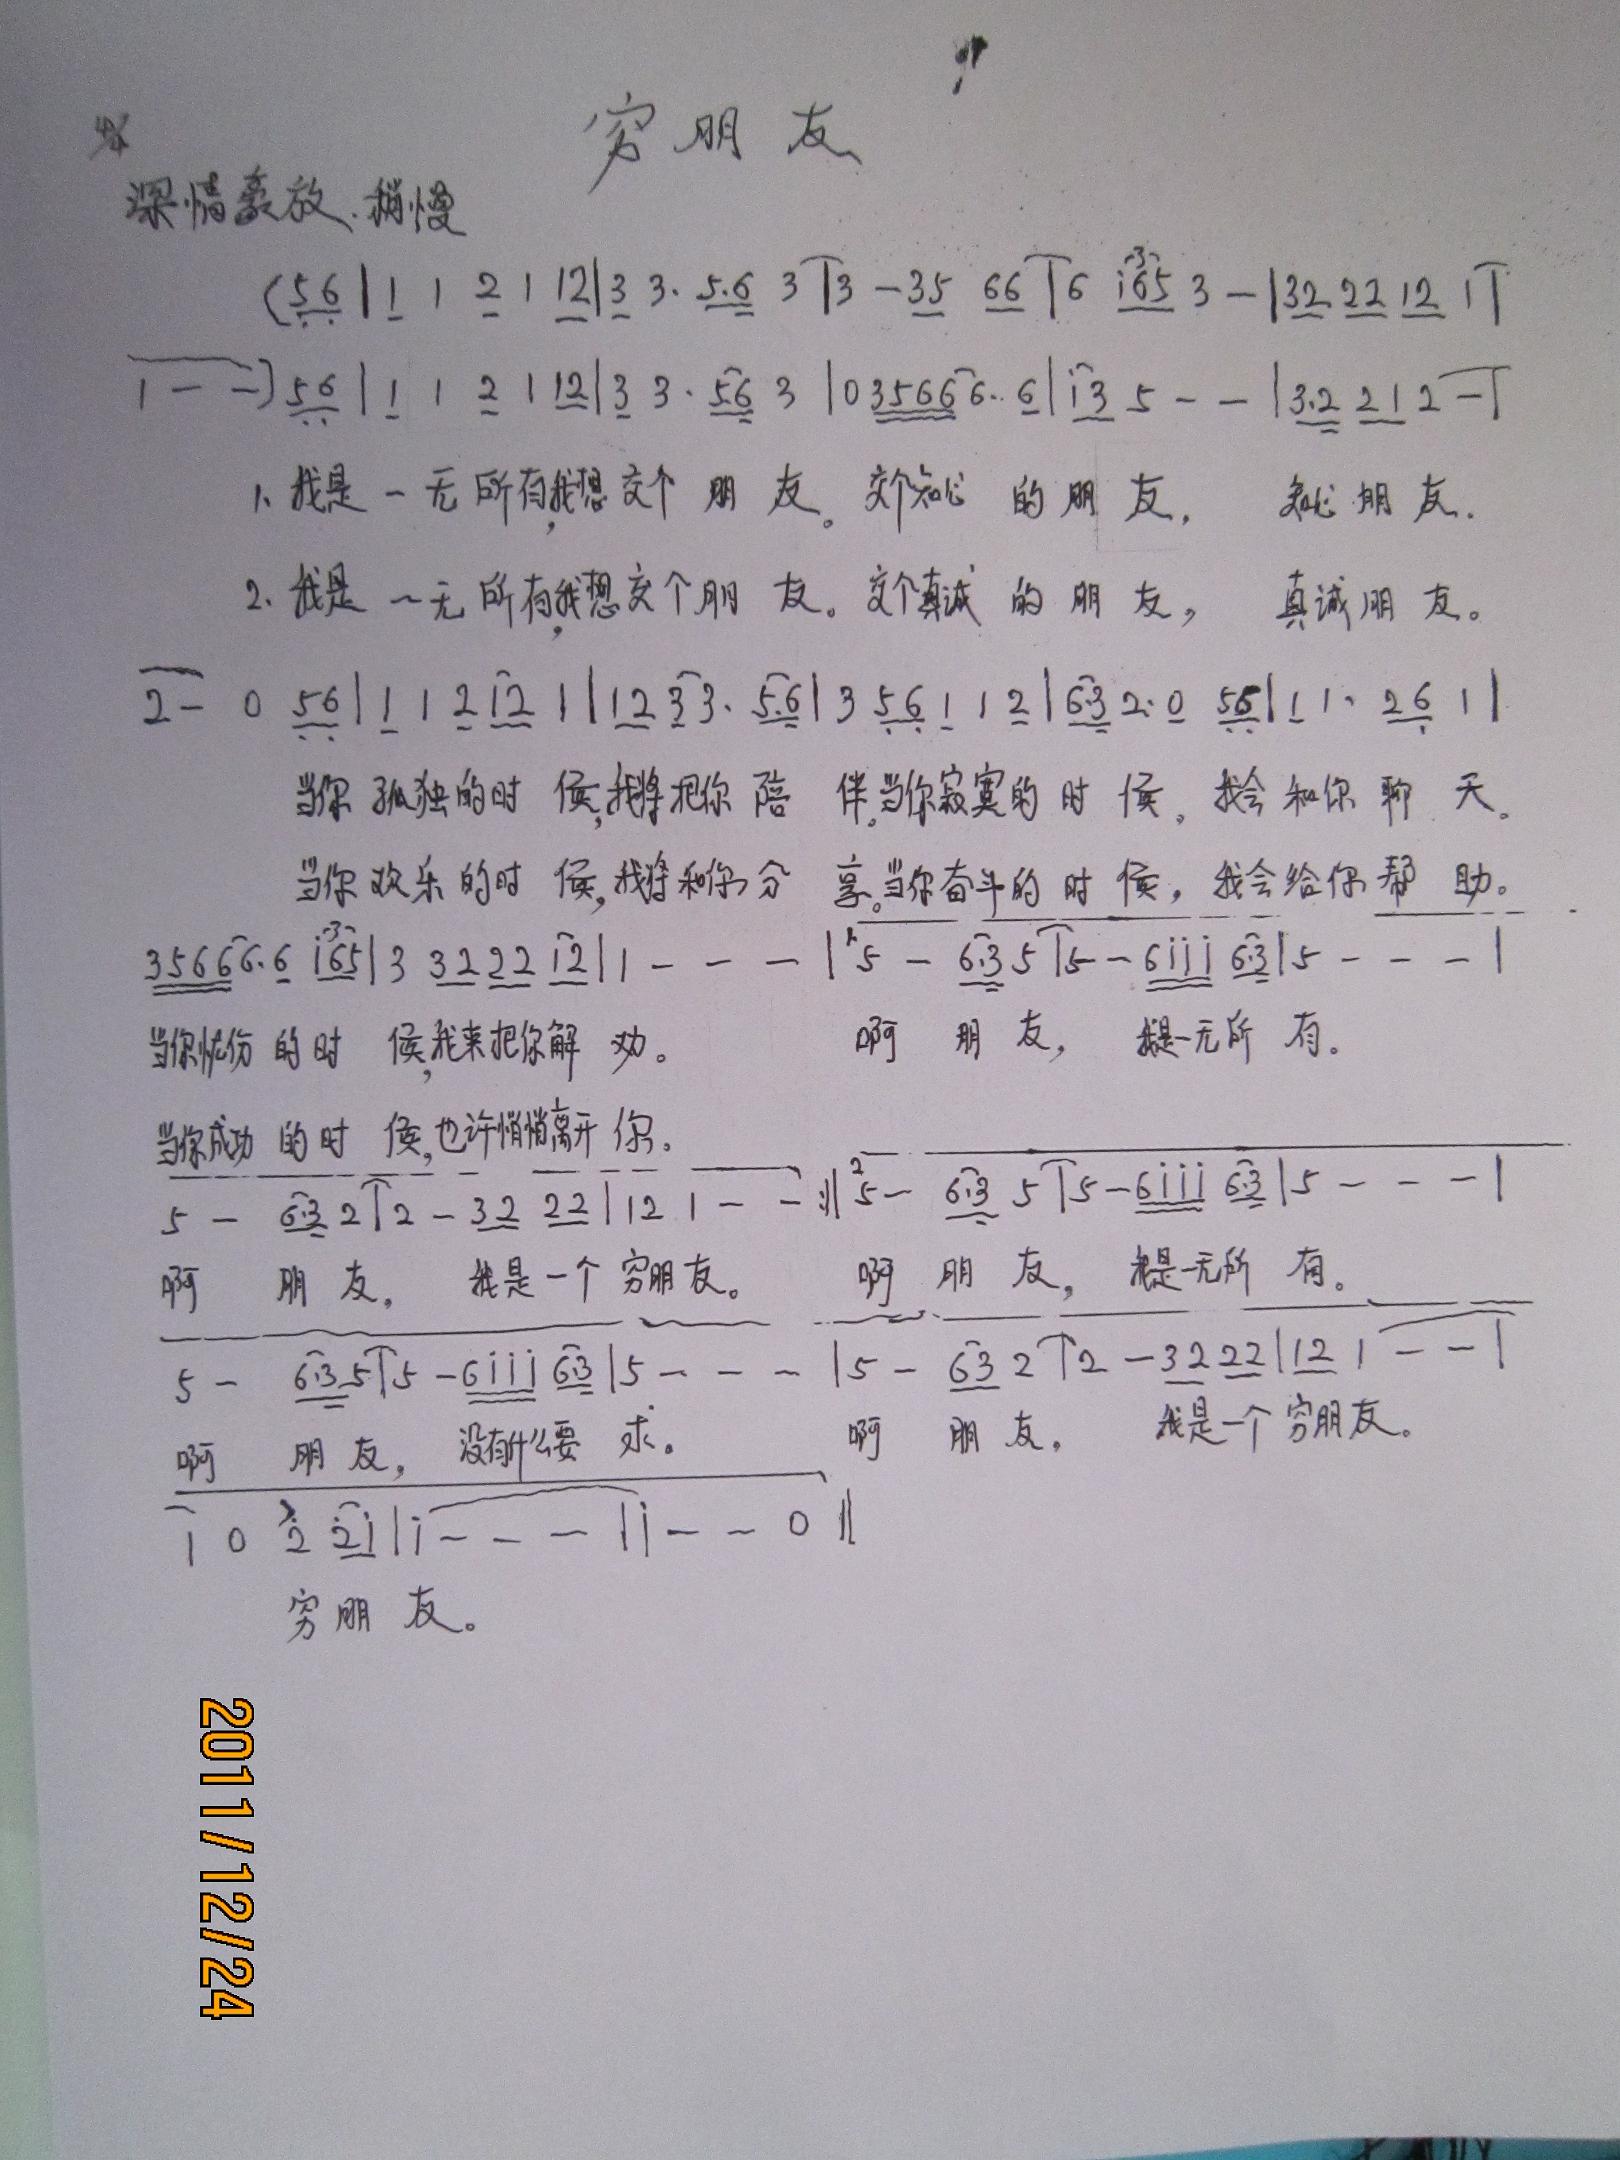 穷朋友
深情豪放、稍慢
(56|1 1 2 1 12|3 3. 5.6 3|3 - 35 66|6 i65 3 -|32 22 12 1|
1 - -)56|1 1 2 1 12|3 3. 56 3|0 35666.. 6|i3 5 - -|3.2 21 2 -|
1、我是一无所有,我想交个朋友。交个知心的朋友, 知心朋友.
2、我是一无所有,我想交个朋友。交个真诚的朋友, 真诚朋友。
2 - 0 56|1 1 2 12 1|12 33. 5.6|3 56 1 1 2|6.3 2. 0 56|1 1. 26 1|
当你孤独的时候,我将把你陪伴。当你寂寞的时候,我会和你聊天。
当你欢乐的时候,我将和你分享。当你奋斗的时候,我会给你帮助。
35666.6 i65|3 32 22 12|1 - - -|1.5 - 6.3 5|5 - 6iii 6.3|5 - - -|
当你忧伤的时候,我来把你解劝。 啊朋友, 我是一无所有。
当你成功的时候,也许悄悄离开你。
5 - 6.3 2|2 - 32 22|12 1 - - :||2 5 - 6.3 5|5 - 6iii 6.3|5 - - -|
啊朋友, 我是一个穷朋友。 啊朋友, 我是一无所有。
5 - 6.3 5|5 - 6iii 6.3|5 - - -|5 - 63 2|2 - 32 22|12 1 - -|
啊朋友, 没有什么要求。 啊朋友, 我是一个穷朋友。
1 0 2 2i|i - - -|i - - 0||
穷朋友。
2011/12/24